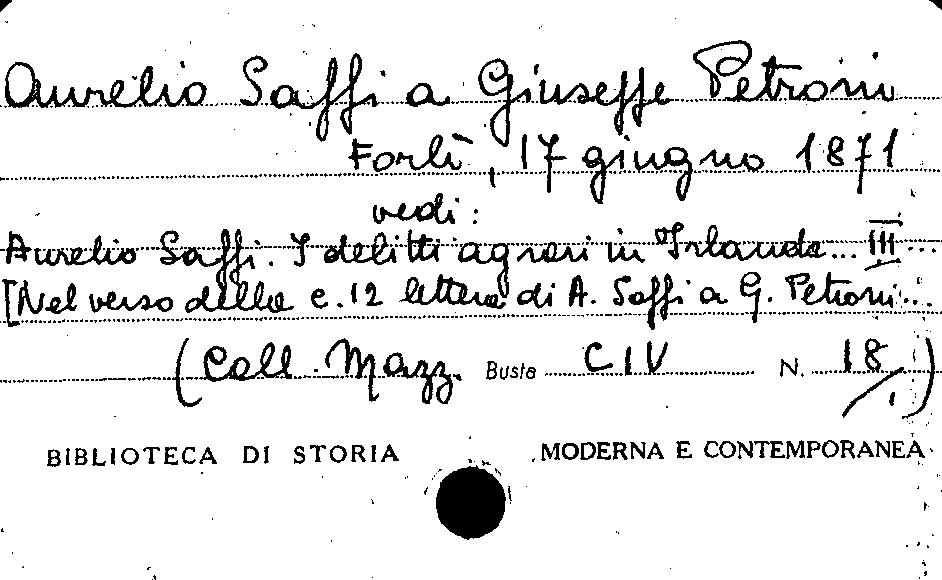 Aurelio Saffi a Giuseppe Petroni
Forlì, 17 giugno 1871
vedi:
Aurelio Saffi. I delitti agrari in Irlanda... III...
[Nel verso della c.12 lettera di A. Saffi a G. Petroni...
(Coll. Mazz. Busta CIV N. 18/1)
BIBLIOTECA DI STORIA MODERNA E CONTEMPORANEA